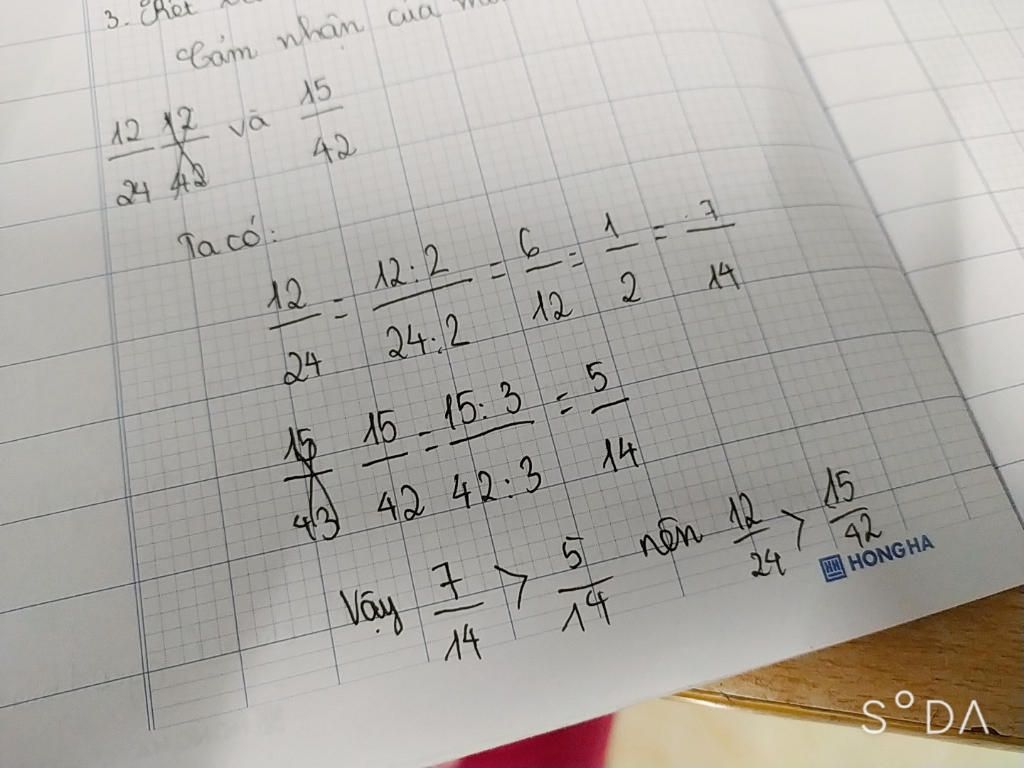 3.
Cảm nhận của
12/24 12/42 và 15/42
Ta có:
12/24 = 12:2/24:2 = 6/12 = 1/2 = 7/14
15/43 15/42 = 15:3/42:3 = 5/14
Vậy 7/14 > 5/14 nên 12/24 > 15/42
HH HONG HA
SODA